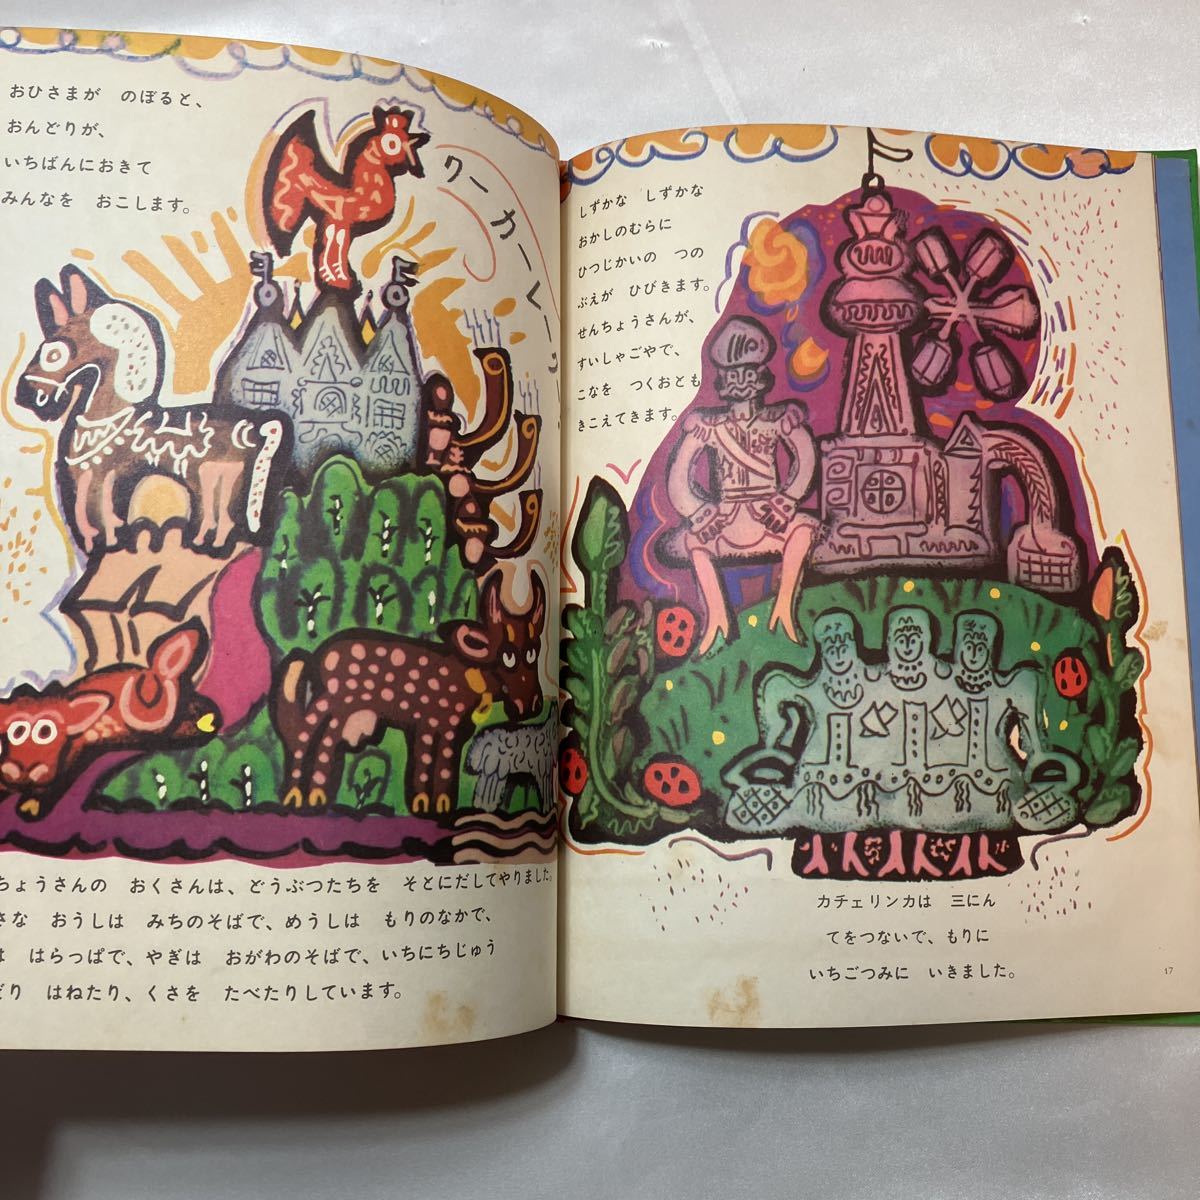 おひさまが のぼると、
おんどりが、
いちばんにおきて
みんなを おこします。
クーカーレークー
ちょうさんの おくさんは、どうぶつたちを そとにだしてやりました。
さな おうしは みちのそばで、めうしは もりのなかで、
は はらっぱで、やぎは おがわのそばで、いちにちじゅう
だり はねたり、くさを たべたりしています。
しずかな しずかな
おかしのむらに
ひつじかいの つの
ぶえが ひびきます。
せんちょうさんが、
すいしゃごやで、
こなを つくおとも
きこえてきます。
カチェリンカは 三にん
てをつないで、もりに
いちごつみに いきました。
17